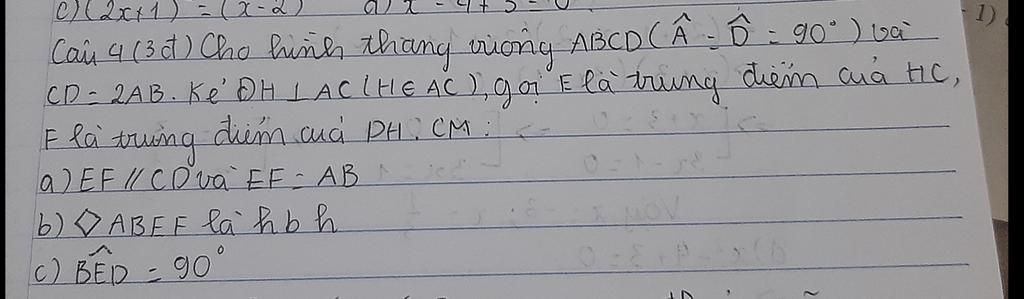 c) (2x+1) = (x-2) d) x - 4 + 3 = 0
Câu 4 (3đ) Cho hình thang vuông ABCD (Â = D̂ = 90°) và
CD = 2AB. Kẻ DH ⊥ AC (H ∈ AC), gọi E là trung điểm của HC,
F là trung điểm của DH. CM:
a) EF // CD và EF = AB
b) ◇ ABEF là hbh
c) BÊD = 90°
1)